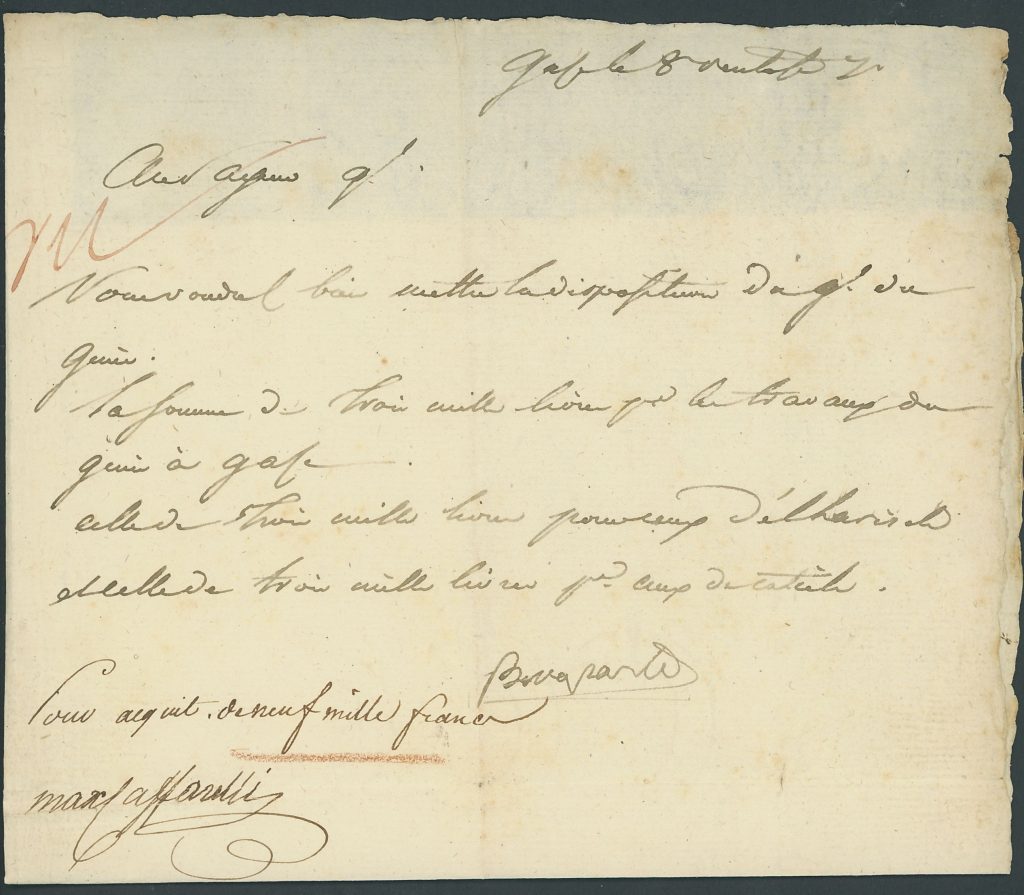 Gase le 8 ventose 7
Au payeur gl.
Vous voudrez bien mettre la disposition du gl. du
genie.
la somme de trois mille livres pr les travaux du
genie à gase.
celle de trois mille livres pour ceux d'élharisch
et celle de trois mille livres pr ceux de catieh.
Bonaparte
Pour acquit de neuf mille francs
max Caffarelli